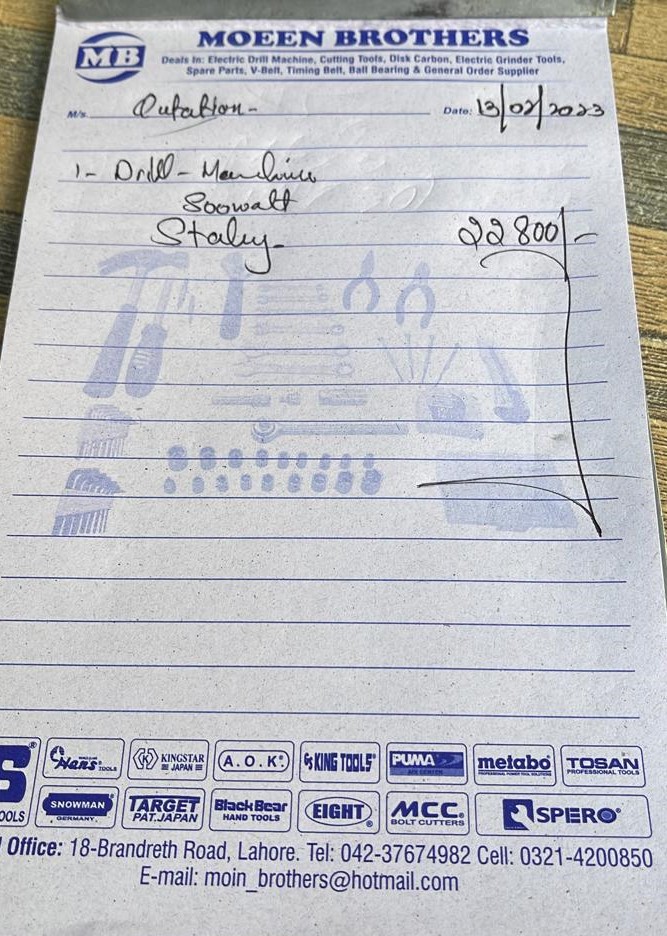 MB
MOEEN BROTHERS
Deals In: Electric Drill Machine, Cutting Tools, Disk Carbon, Electric Grinder Tools,
Spare Parts, V-Belt, Timing Belt, Ball Bearing & General Order Supplier
M/s. Qutation- Date: 13/02/2023
1- Drill-Machine
800watt
Staley- 22800/-
S® Han's TOOLS KINGSTAR JAPAN A.O.K. KING TOOLS PUMA AIR CENTER metabo PROFESSIONAL POWER TOOL SOLUTIONS TOSAN PROFESSIONAL TOOLS
OOLS SNOWMAN GERMANY. TARGET PAT.JAPAN BlackBear HAND TOOLS EIGHT® MCC® BOLT CUTTERS SPERO®
Office: 18-Brandreth Road, Lahore. Tel: 042-37674982 Cell: 0321-4200850
E-mail: moin_brothers@hotmail.com